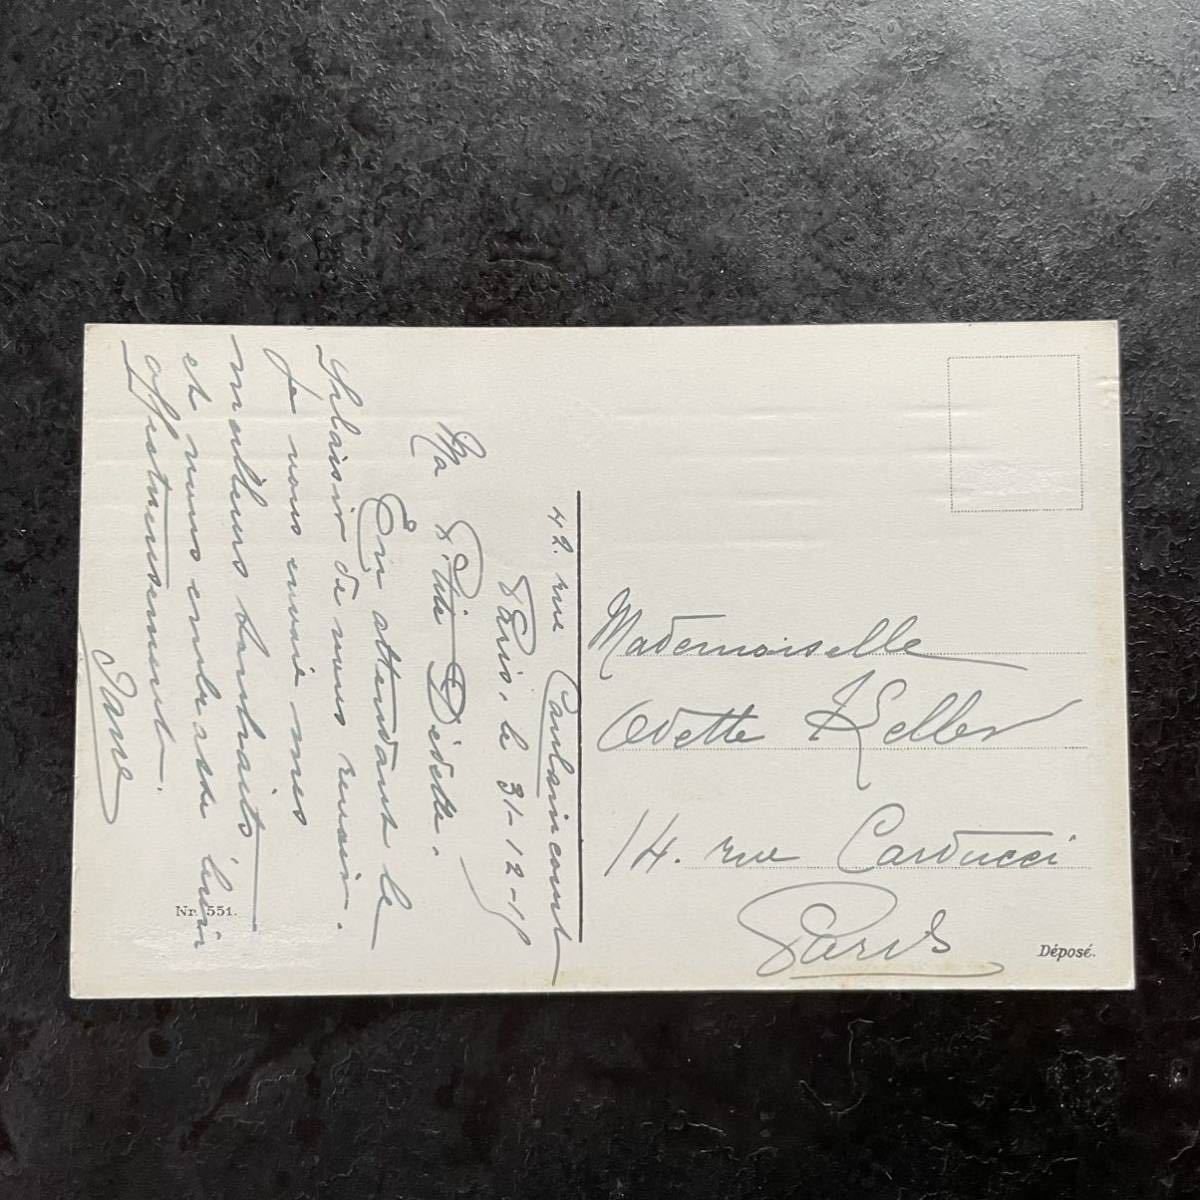 42. rue Caulaincourt
Paris, le 31-12-
Ma Ptite Dédette.
En attendant le
plaisir de vous revoir.
Je vous envoie mes
meilleurs souhaits
et vous embrasse bien
affectueusement.
Jane
Mademoiselle
Odette Keller
14. rue Carducci
Paris
Nr. 551.
Déposé.